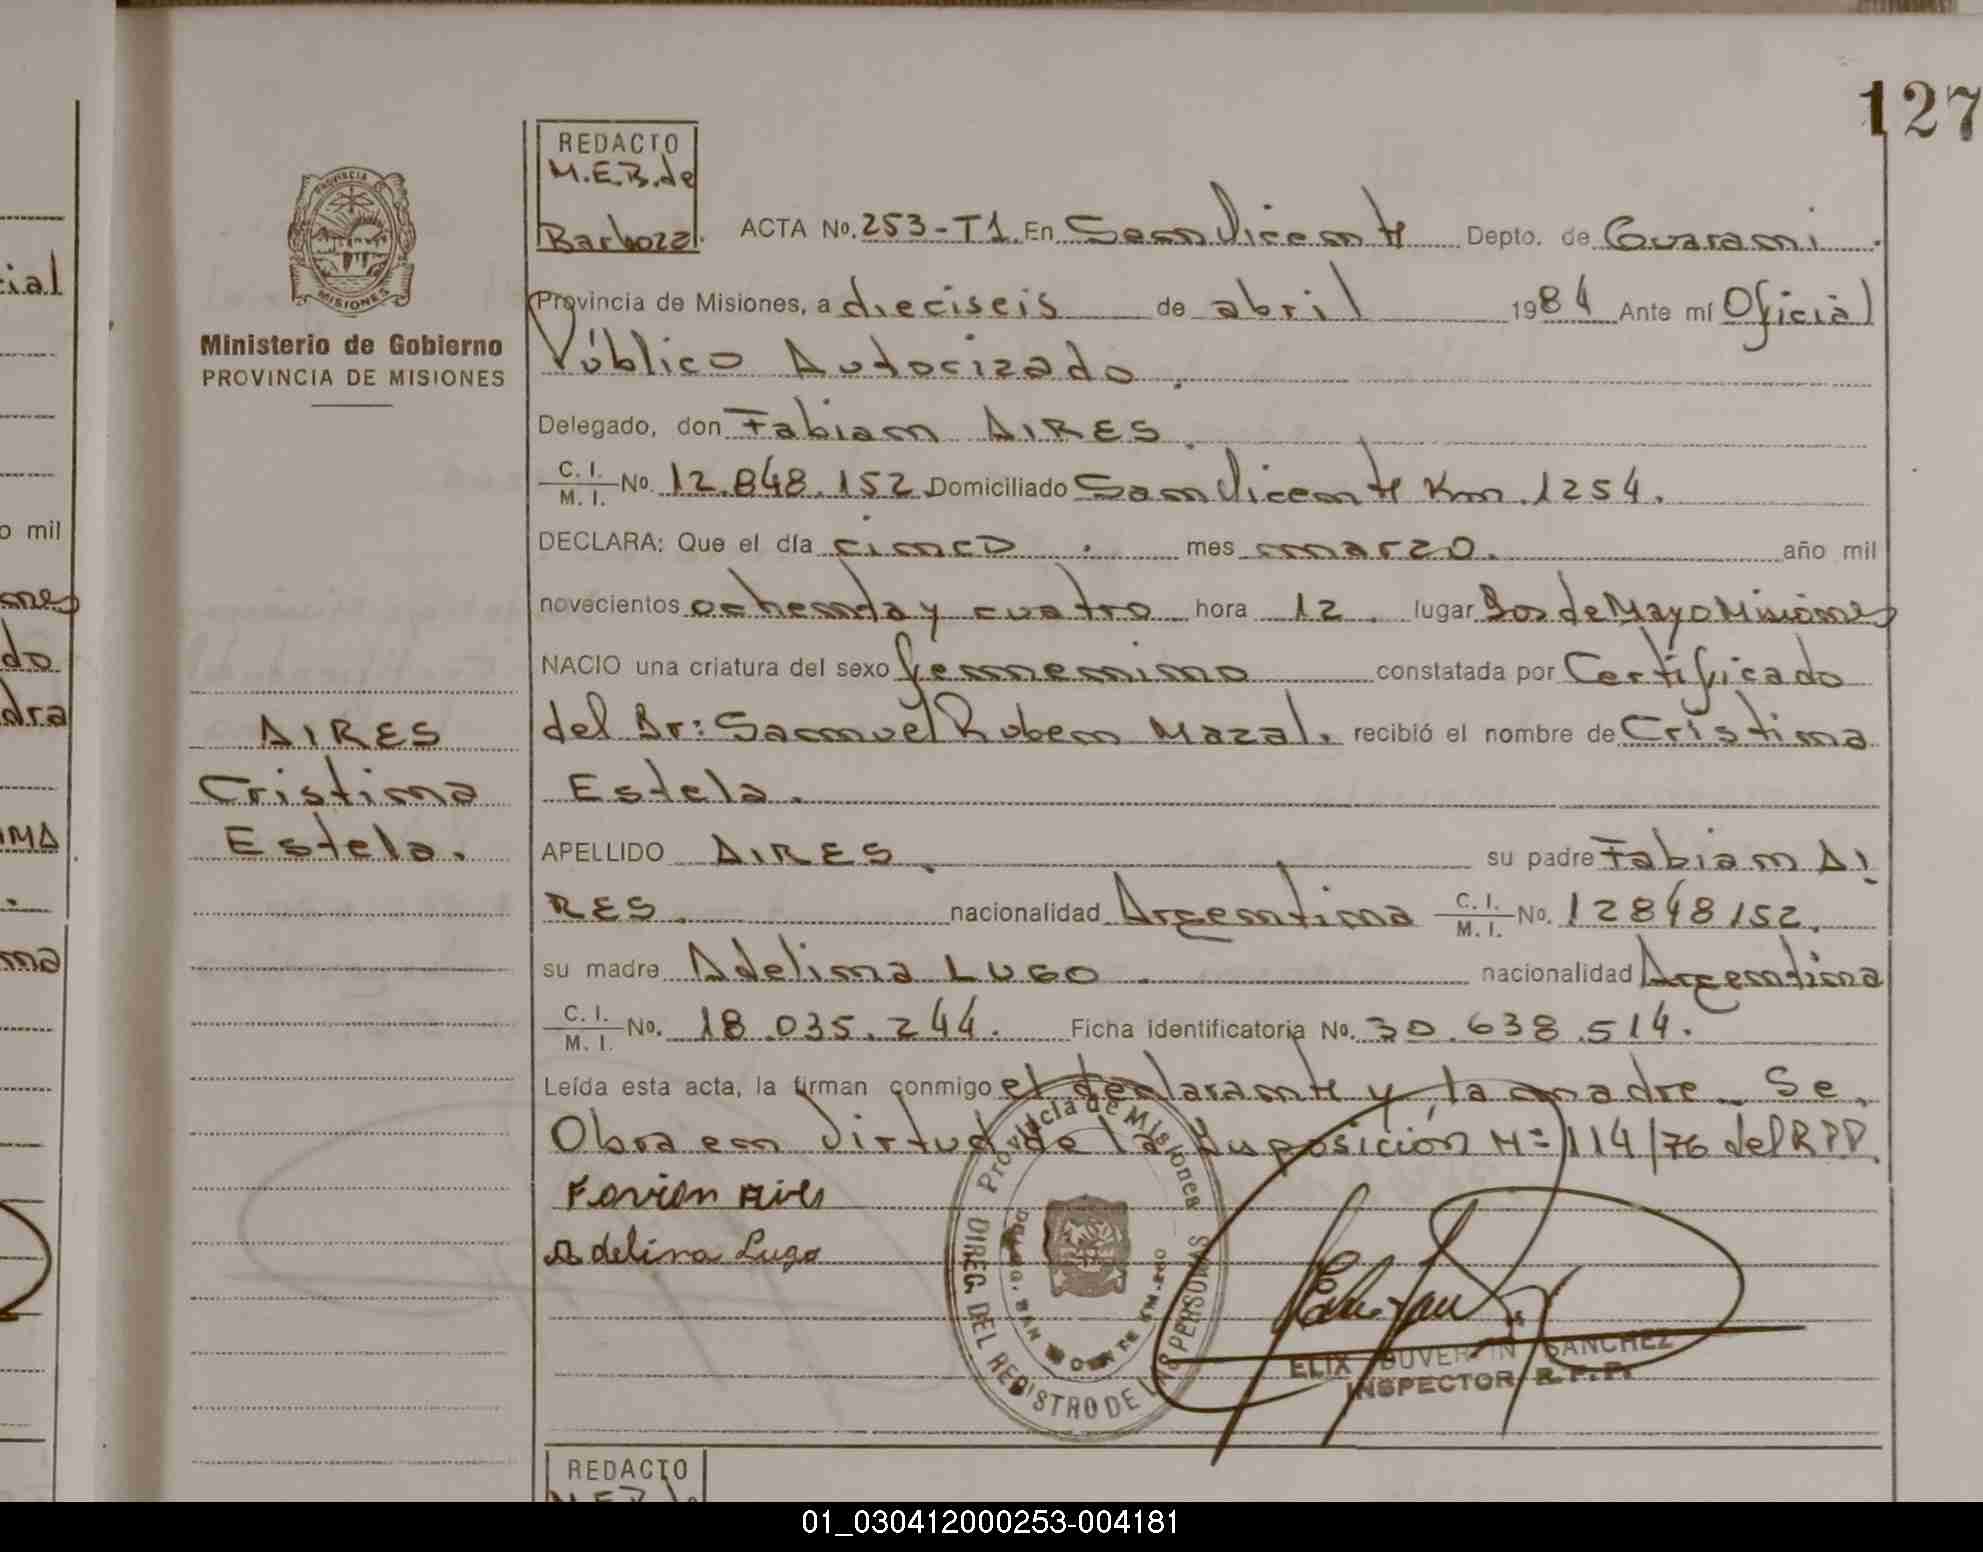 127
REDACTO
M.E.B.de
Barboza.
ACTA No. 253-T1. En San Vicente Depto. de Guarani.
PROVINCIA
MISIONES
Provincia de Misiones, a dieciseis de abril 1984 Ante mí Oficial
Ministerio de Gobierno
PROVINCIA DE MISIONES
Público Autorizado.
Delegado, don Fabian AIRES.
C. I.
M. I. No. 12.848.152. Domiciliado San Vicente Km. 1254.
DECLARA: Que el día cinco. mes marzo. año mil
novecientos ochenta y cuatro hora 12. lugar Dos de Mayo Misiones
NACIO una criatura del sexo femenino constatada por Certificado
del Dr: Samuel Ruben Mazal. recibió el nombre de Cristina
Estela.
AIRES
Cristina
Estela.
APELLIDO AIRES. su padre Fabian AI
RES. nacionalidad Argentina C. I.
M. I. No. 12848152.
su madre Adelina LUGO. nacionalidad Argentina
C. I.
M. I. No. 18.035.244. Ficha identificatoria No. 30.638.514.
Leída esta acta, la firman conmigo el declarante y la madre. Se
Obra en Virtud de la Disposición Nº 114/76 del RPP.
Favian Aires
Adelina Lugo
Provincia de Misiones
DIREC. DEL REGISTRO DE LAS PERSONAS
SAN VICENTE KM.
ELIX DUVER SANCHEZ
INSPECTOR R.P.P.
REDACTO
cial
o mil
ones
do
dra
IMA
ina
01_030412000253-004181